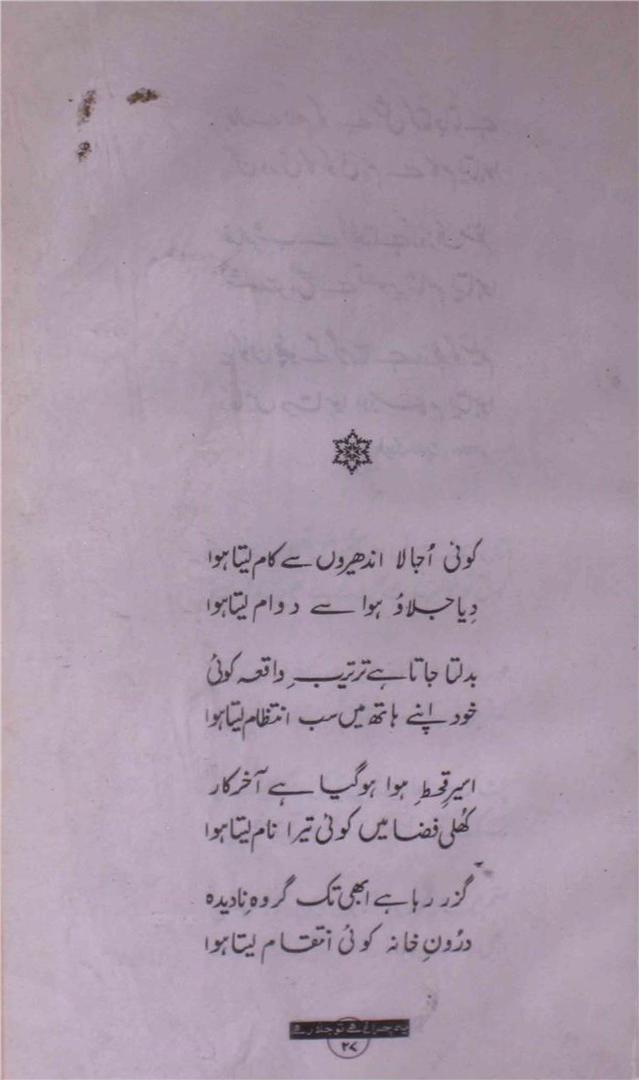 کوئی اُجالا اندھیروں سے کام لیتا ہوا
دِیا جلاؤ ہوا سے دوام لیتا ہوا
بدلتا جاتا ہے ترتیبِ واقعہ کوئی
خود اپنے ہاتھ میں سب انتظام لیتا ہوا
اسیرِ قحطِ ہوا ہوگیا ہے آخر کار
کھُلی فضا میں کوئی تیرا نام لیتا ہوا
گزر رہا ہے ابھی تک گروہِ نادیدہ
درُونِ خانہ کوئی انتقام لیتا ہوا
یہ چراغ ہے تو جلا رہے
۲۷